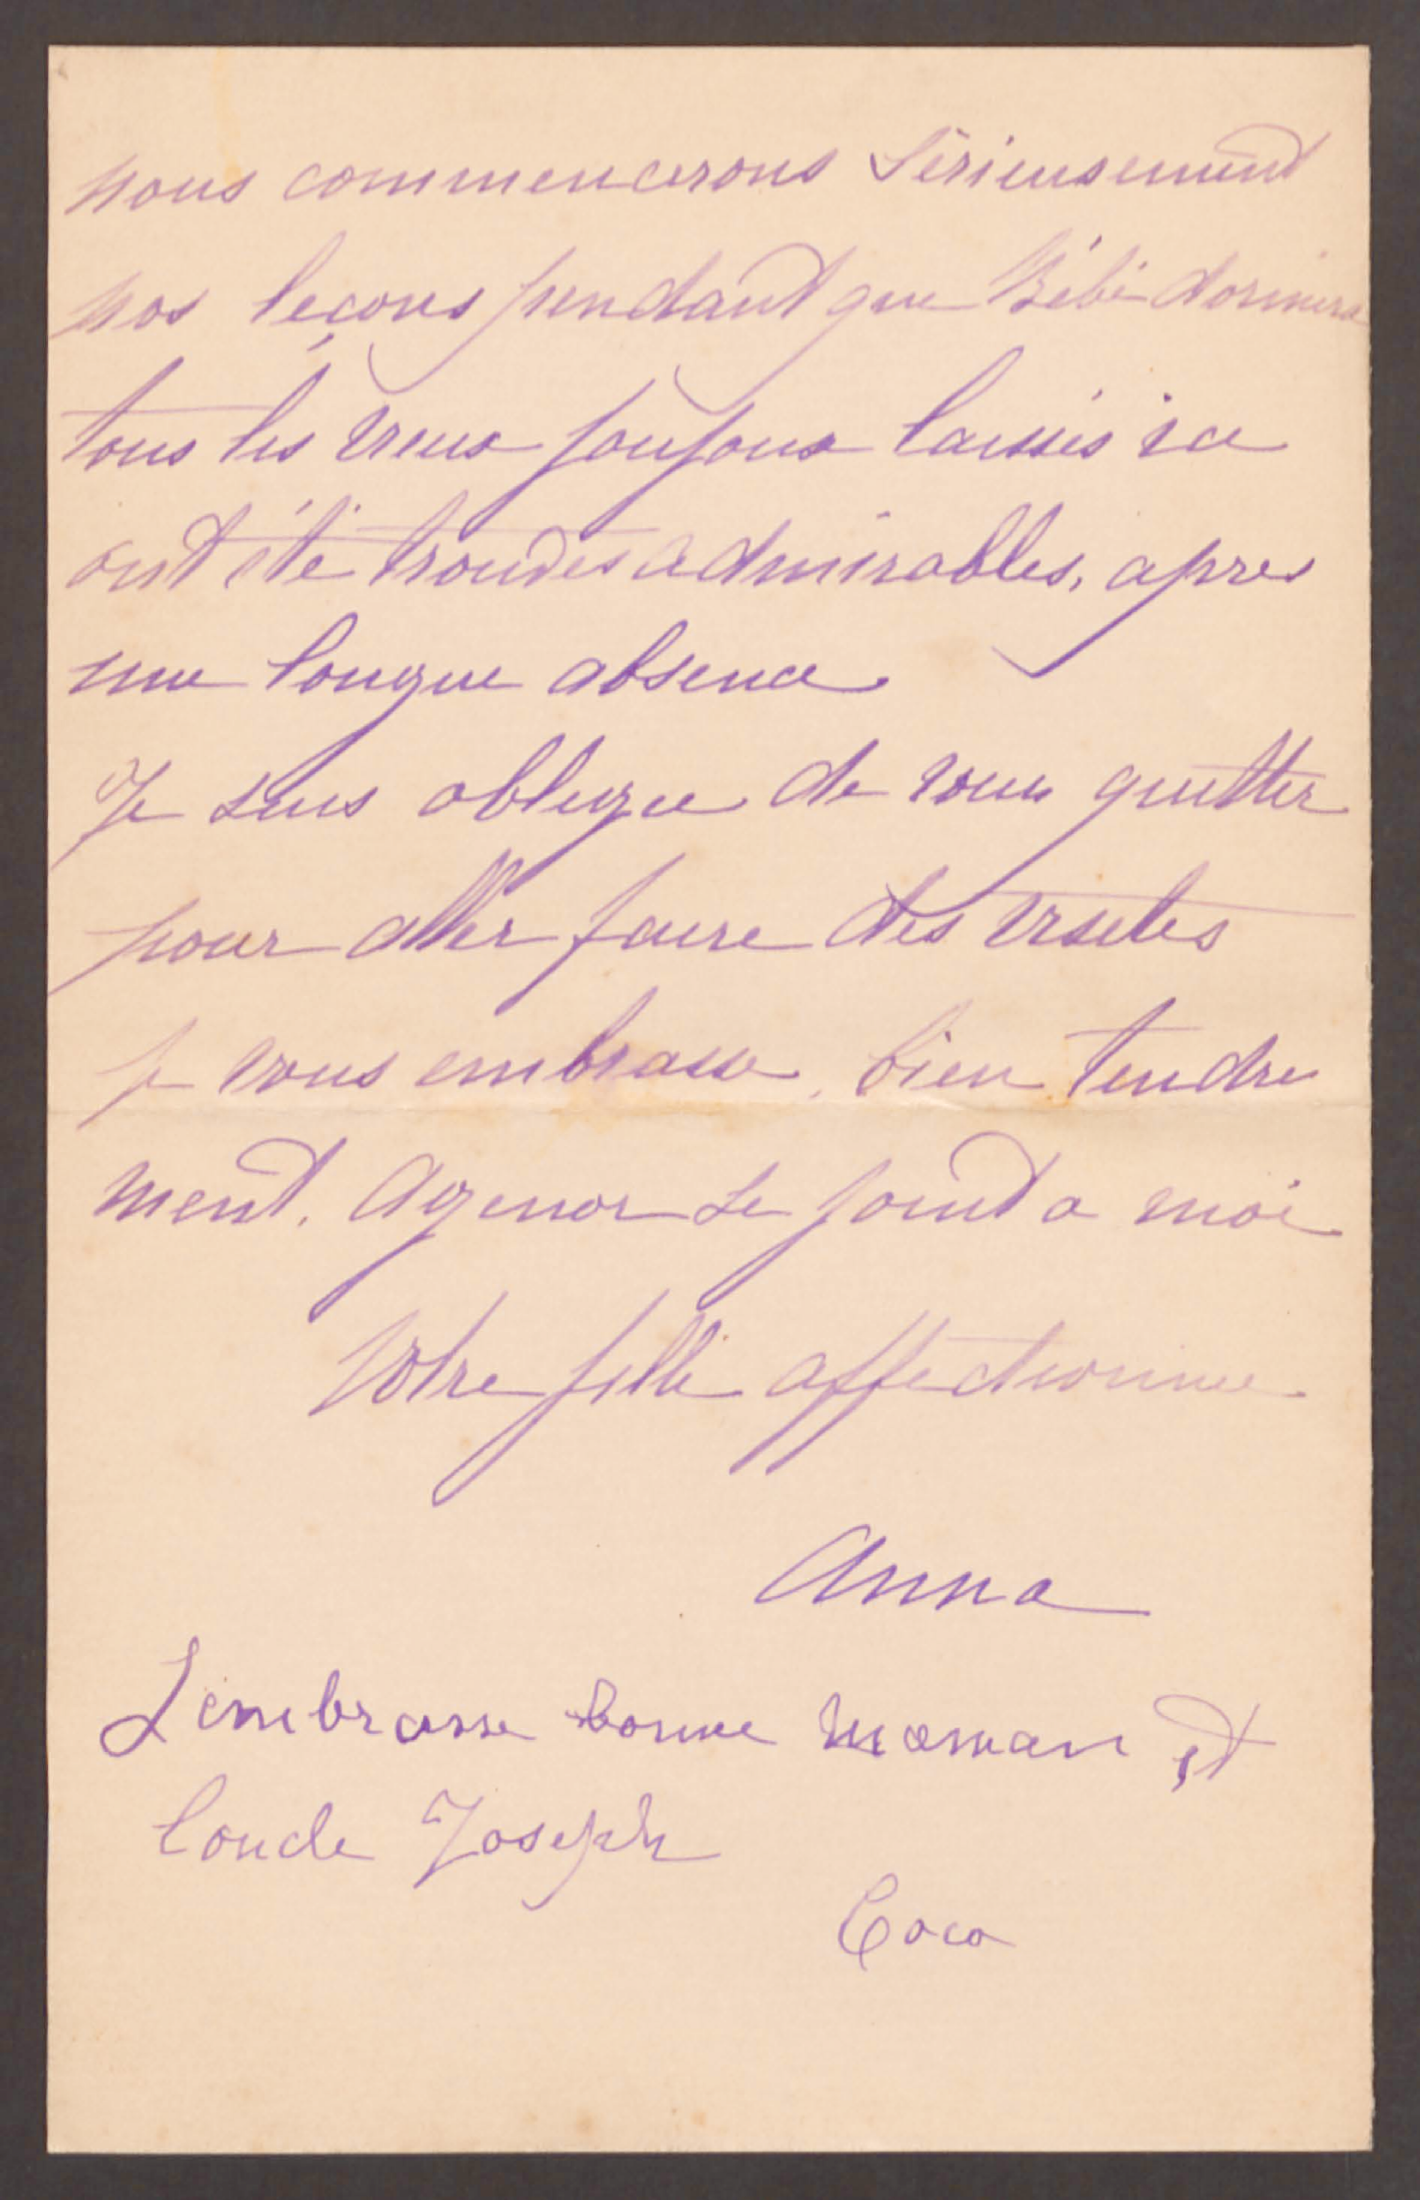 nous commencerons sérieusement
nos leçons pendant que Bébé dormira
tous les vieux joujoux laissés ici
ont été trouvés admirables, apres
une longue absence.
Je suis obligée de vous quitter
pour aller faire des visites
je vous embrasse, bien tendre
ment. Agenor se joint a moi
Votre fille affectionnée
Anna
J'embrasse bonne maman et
l'oncle Joseph
Coco